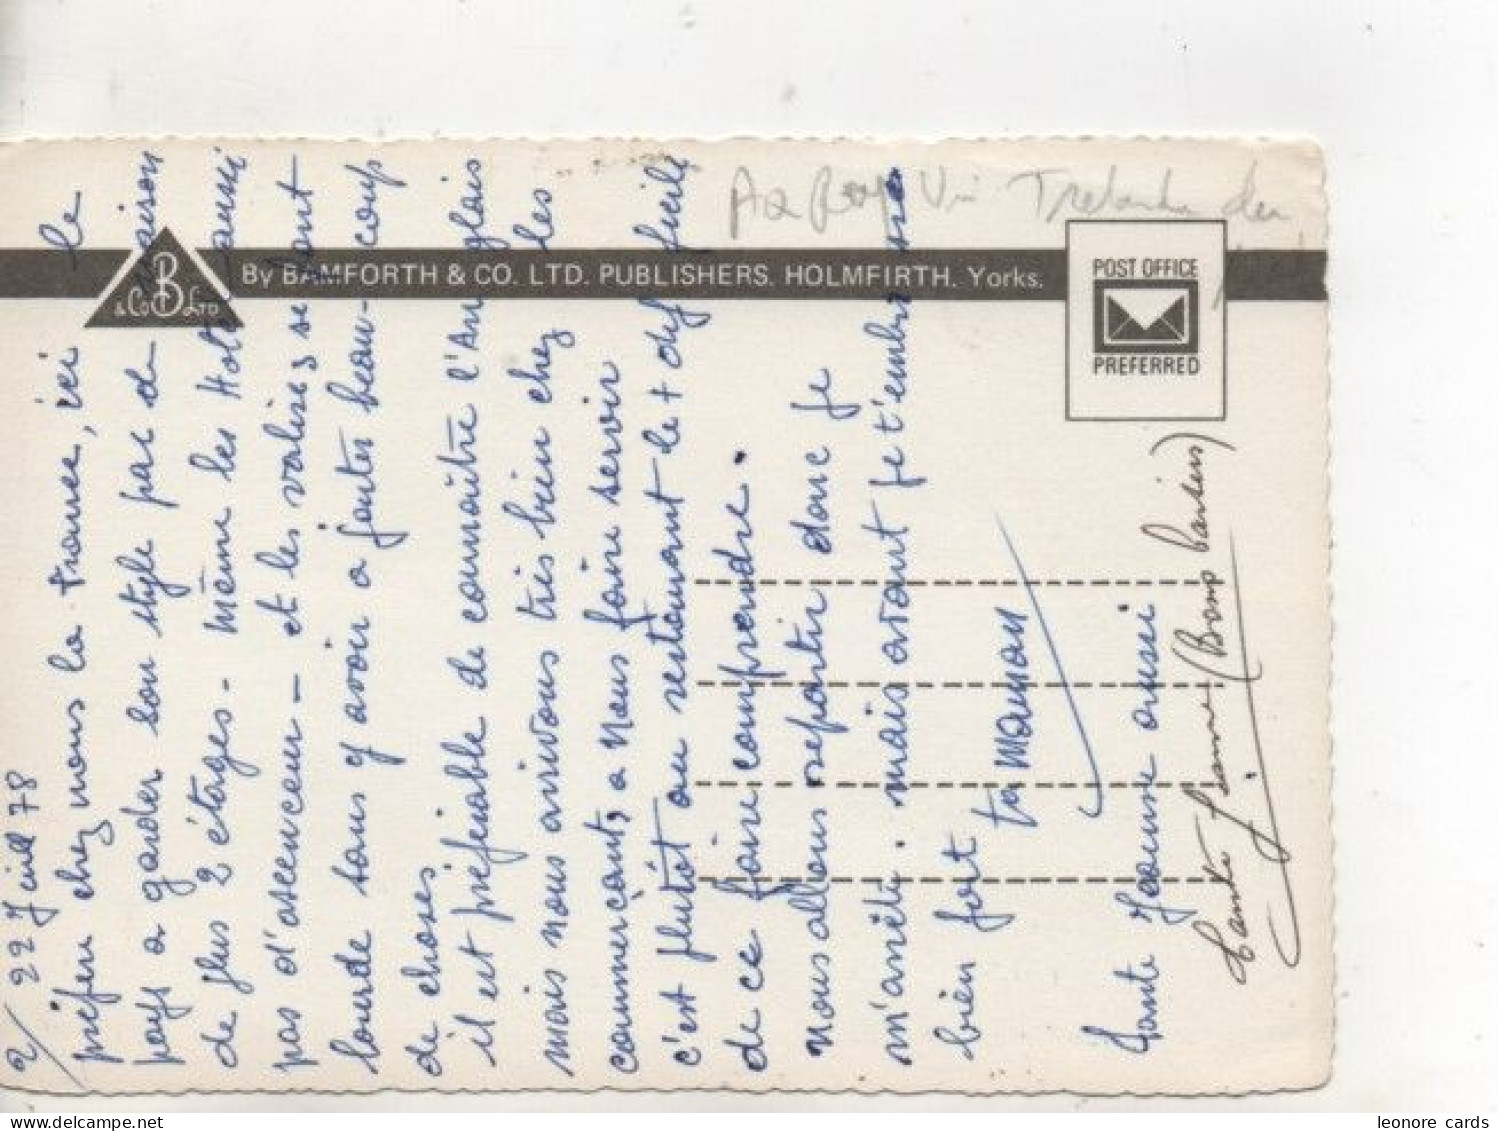 2/ 22 Juil 78
préféré chez nous la France, ici le
pays a garder son style pas de maison
de plus 2 étages - même les Hotels aussi
pas d'ascenceur - et les valises se font
lourde sans y avoir a jouter beau-coup
de choses
il est préférable de connaître l'Anglais
mais nous arrivons très bien chez les
commerçants, a nous faire servir
c'est plutôt au restaurant le + difficile
de ce faire comprendre.
Nous allons repartir donc je
m'arrête. mais avant je t'embrasse
bien fort
ta maman
Tante Jeanne aussi
Tante Jeanne (Bons baisers)
By BAMFORTH & CO. LTD. PUBLISHERS. HOLMFIRTH. Yorks.
B
& Co Ltd
POST OFFICE
PREFERRED
leonore cards